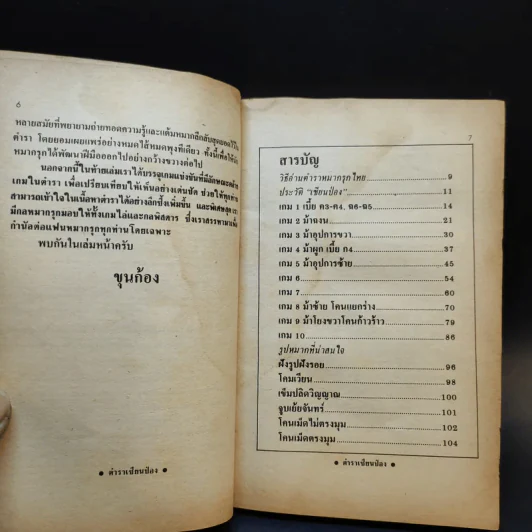 6
หลายสมัยที่พยายามถ่ายทอดความรู้และแต้มหมากลึกลับสุดยอดไว้ใน
ตำรา โดยยอมเผยแพร่อย่างหมดไส้หมดพุงทีเดียว ทั้งนี้เพื่อให้
หมากรุกได้พัฒนาฝีมือออกไปอย่างกว้างขวางต่อไป
นอกจากนี้ในท้ายเล่มเราได้บรรจุเกมแข่งขันที่มีลักษณะคล้าย
เกมในตำรา เพื่อเปรียบเทียบให้เห็นอย่างเด่นชัด ช่วยให้ทุกท่าน
สามารถเข้าใจในเนื้อหาตำราได้อย่างลึกซึ้งเพิ่มขึ้น และพิเศษสุด
มีกลหมากรุกมอบให้ทั้งเกมไล่และกลพิสดาร ซึ่งเราสรรหามาเพื่อ
กำนัลต่อแฟนหมากรุกทุกท่านโดยเฉพาะ
พบกันในเล่มหน้าครับ
ขุนก้อง
7
สารบัญ
วิธีอ่านตำราหมากรุกไทย 9
ประวัติ "เซียนป๋อง" 11
เกม 1 เบี้ย ค3-ค4, ฉ6-ฉ5 14
เกม 2 ม้าฉงน 21
เกม 3 ม้าอุปการขวา 30
เกม 4 ม้าผูก เบี้ย ก4 37
เกม 5 ม้าอุปการซ้าย 45
เกม 6 54
เกม 7 60
เกม 8 ม้าซ้าย โคนแยกร่าง 70
เกม 9 ม้าโยงขวาโคนก้าวร้าว 79
เกม 10 86
รูปหมากที่น่าสนใจ
ฝังรูปฝังรอย 96
โคมเวียน 98
เข็มปลิดวิญญาณ 100
จูบเย้ยจันทร์ 101
โคนเม็ดไม่ตรงมุม 102
โคนเม็ดตรงมุม 104
● ตำราเซียนป๋อง ●
● ตำราเซียนป๋อง ●